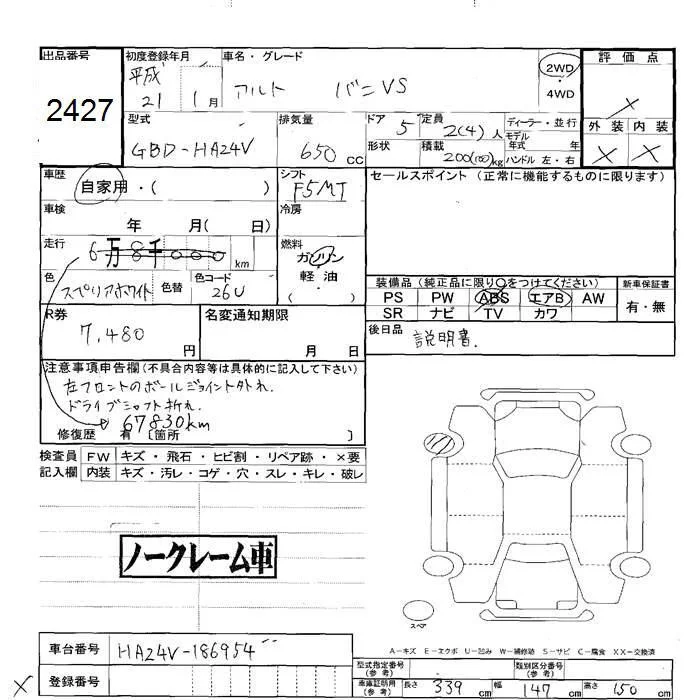 出品番号 初度登録年月 車名・グレード 2WD・4WD 評価点
2427
平成 21 1月 アルト バン VS
X
型式 排気量 ドア 定員 ディーラー・並行
GBD-HA24V 650cc 5 2(4)人 モデル年式 年
形状 積載 200(100)kg ハンドル 左・右
外装 内装
X X
車歴 自家用・( ) シフト F5MT
セールスポイント (正常に機能するものに限ります)
車検 年 月( 日) 冷房
走行 6万8千000km 燃料 ガソリン
軽油
( )
色 スペリアホワイト 色替 色コード 26U
装備品 (純正品に限り○をつけてください) 新車保証書
PS PW ABS エアB AW 有・無
SR ナビ TV カワ
R券 7,480円 名変通知期限 月 日
後日品 説明書.
注意事項申告欄 (不具合内容等は具体的に記入して下さい)
左フロントのボールジョイント外れ.
ドライブシャフト折れ.
67830km
修復歴 有 〔箇所 〕
検査員 FW キズ・飛石・ヒビ割・リペア跡・×要
記入欄 内装 キズ・汚レ・コゲ・穴・スレ・キレ・破レ
ノークレーム車
スペア
A－キズ E－エクボ U－凹み W－補修跡 S－サビ C－腐食 XX－交換済
車台番号 HA24V-186954
型式指定番号(参考) 類別区分番号(参考)
X 登録番号
車庫証明用(参考) 長さ 339cm 幅 147cm 高さ 150cm